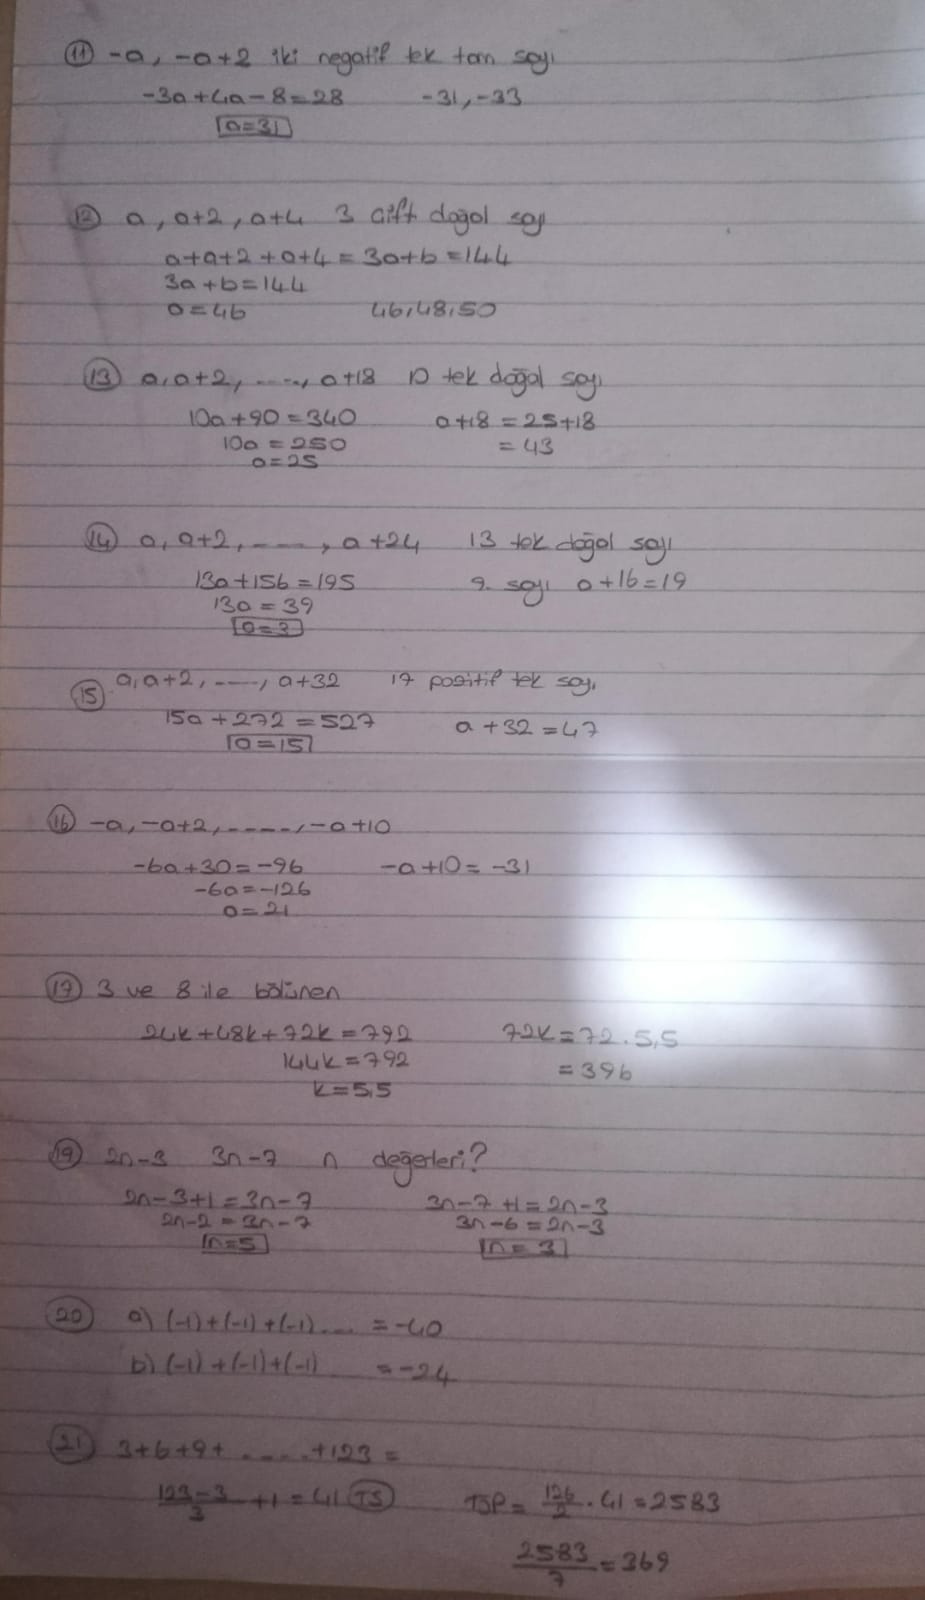 11 -a, -a+2 iki negatif tek tam sayı
-3a+4a-8=28 -31,-33
a=31
12 a, a+2, a+4 3 çift doğal sayı
a+a+2+a+4=3a+6=144
3a+6=144
a=46 46,48,50
13 a,a+2, ....., a+18 10 tek doğal sayı
10a+90=340 a+18=25+18
10a=250 =43
a=25
14 a, a+2, ----, a+24 13 tek doğal sayı
13a+156=195 9. sayı a+16=19
13a=39
a=3
15 a,a+2, ----, a+32 17 pozitif tek sayı
15a+272=527 a+32=47
a=15
16 -a,-a+2,-----,-a+10
-6a+30=-96 -a+10=-31
-6a=-126
a=21
17 3 ve 8 ile bölünen
24k+48k+72k=792 72k=72.5,5
144k=792 =396
k=5,5
19 2n-3 3n-7 n değerleri?
2n-3+1=3n-7 3n-7+1=2n-3
2n-2=3n-7 3n-6=2n-3
n=5 n=3
20 a) (-1)+(-1)+(-1).... =-40
b) (-1)+(-1)+(-1) =-24
21 3+6+9+.....+123=
123-3/3 +1=41 TS TSP=126/2.41=2583
2583/7=369